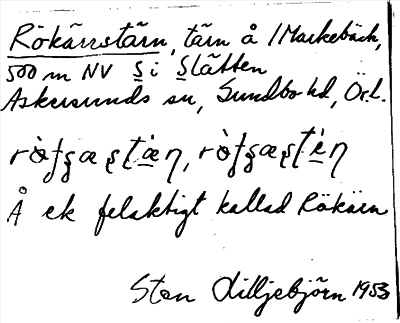 Rökärrstärn, tärn å /Markebäck,
500 m NV S i Slätten
Askersunds sn, Sundbo hd, Ör.l.
Å ek felaktigt kallad Rökärn
Sten Lilljebjörn 1953